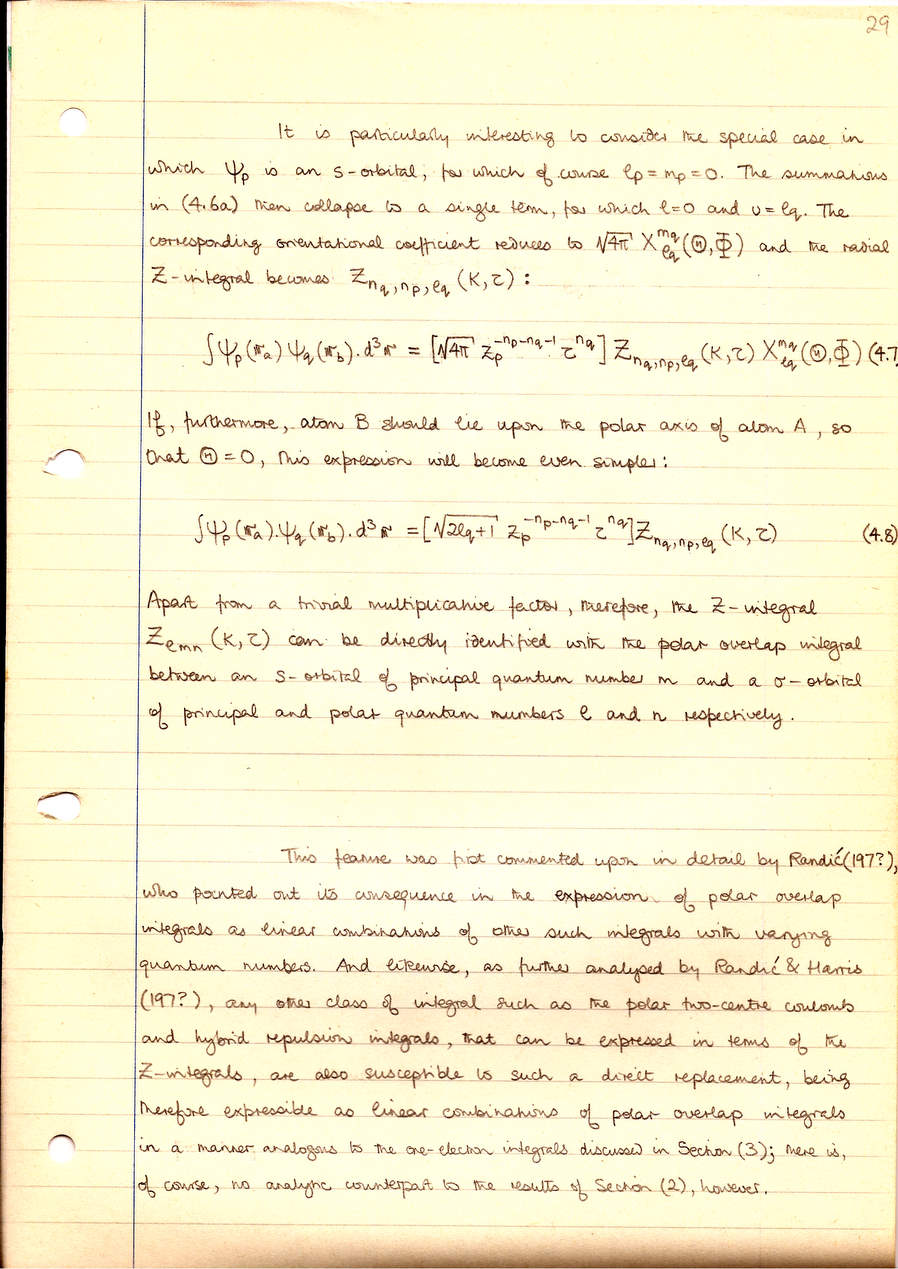 29
It is particularly interesting to consider the special case in
which Ψp is an s-orbital, for which of course ℓp = mp = 0. The summations
in (4.6a) then collapse to a single term, for which ℓ=0 and υ = ℓq. The
corresponding orientational coefficient reduces to √4π X^mq_ℓq (Θ,Φ) and the radial
Z-integral becomes Z_nq,np,ℓq (K,τ) :
∫Ψp(𝐫a) Ψq(𝐫b). d³𝐫 = [√4π z_p^-np-nq-1 τ^nq] Z_nq,np,ℓq (K,τ) X^mq_ℓq (Θ,Φ) (4.7
If, furthermore, atom B should lie upon the polar axis of atom A, so
that Θ = 0, this expression will become even simpler:
∫Ψp(𝐫a).Ψq(𝐫b). d³𝐫 = [√2ℓq+1 z_p^-np-nq-1 τ^nq] Z_nq,np,ℓq (K,τ) (4.8)
Apart from a trivial multiplicative factor, therefore, the Z-integral
Z_ℓmn (K,τ) can be directly identified with the polar overlap integral
between an s-orbital of principal quantum number m and a σ-orbital
of principal and polar quantum numbers ℓ and n respectively.
This feature was first commented upon in detail by Randić (197?),
who pointed out its consequence in the expression of polar overlap
integrals as linear combinations of other such integrals with varying
quantum numbers. And likewise, as further analysed by Randić & Harris
(197?), any other class of integral such as the polar two-centre coulomb
and hybrid repulsion integrals, that can be expressed in terms of the
Z-integrals, are also susceptible to such a direct replacement, being
therefore expressible as linear combinations of polar overlap integrals
in a manner analogous to the one-electron integrals discussed in Section (3); there is,
of course, no analytic counterpart to the results of Section (2), however.